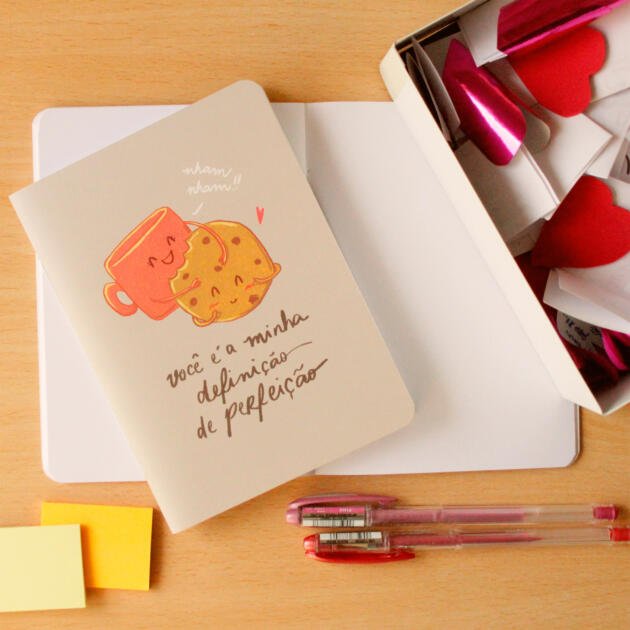 nham
nham!!
você é a minha
definição
de perfeição